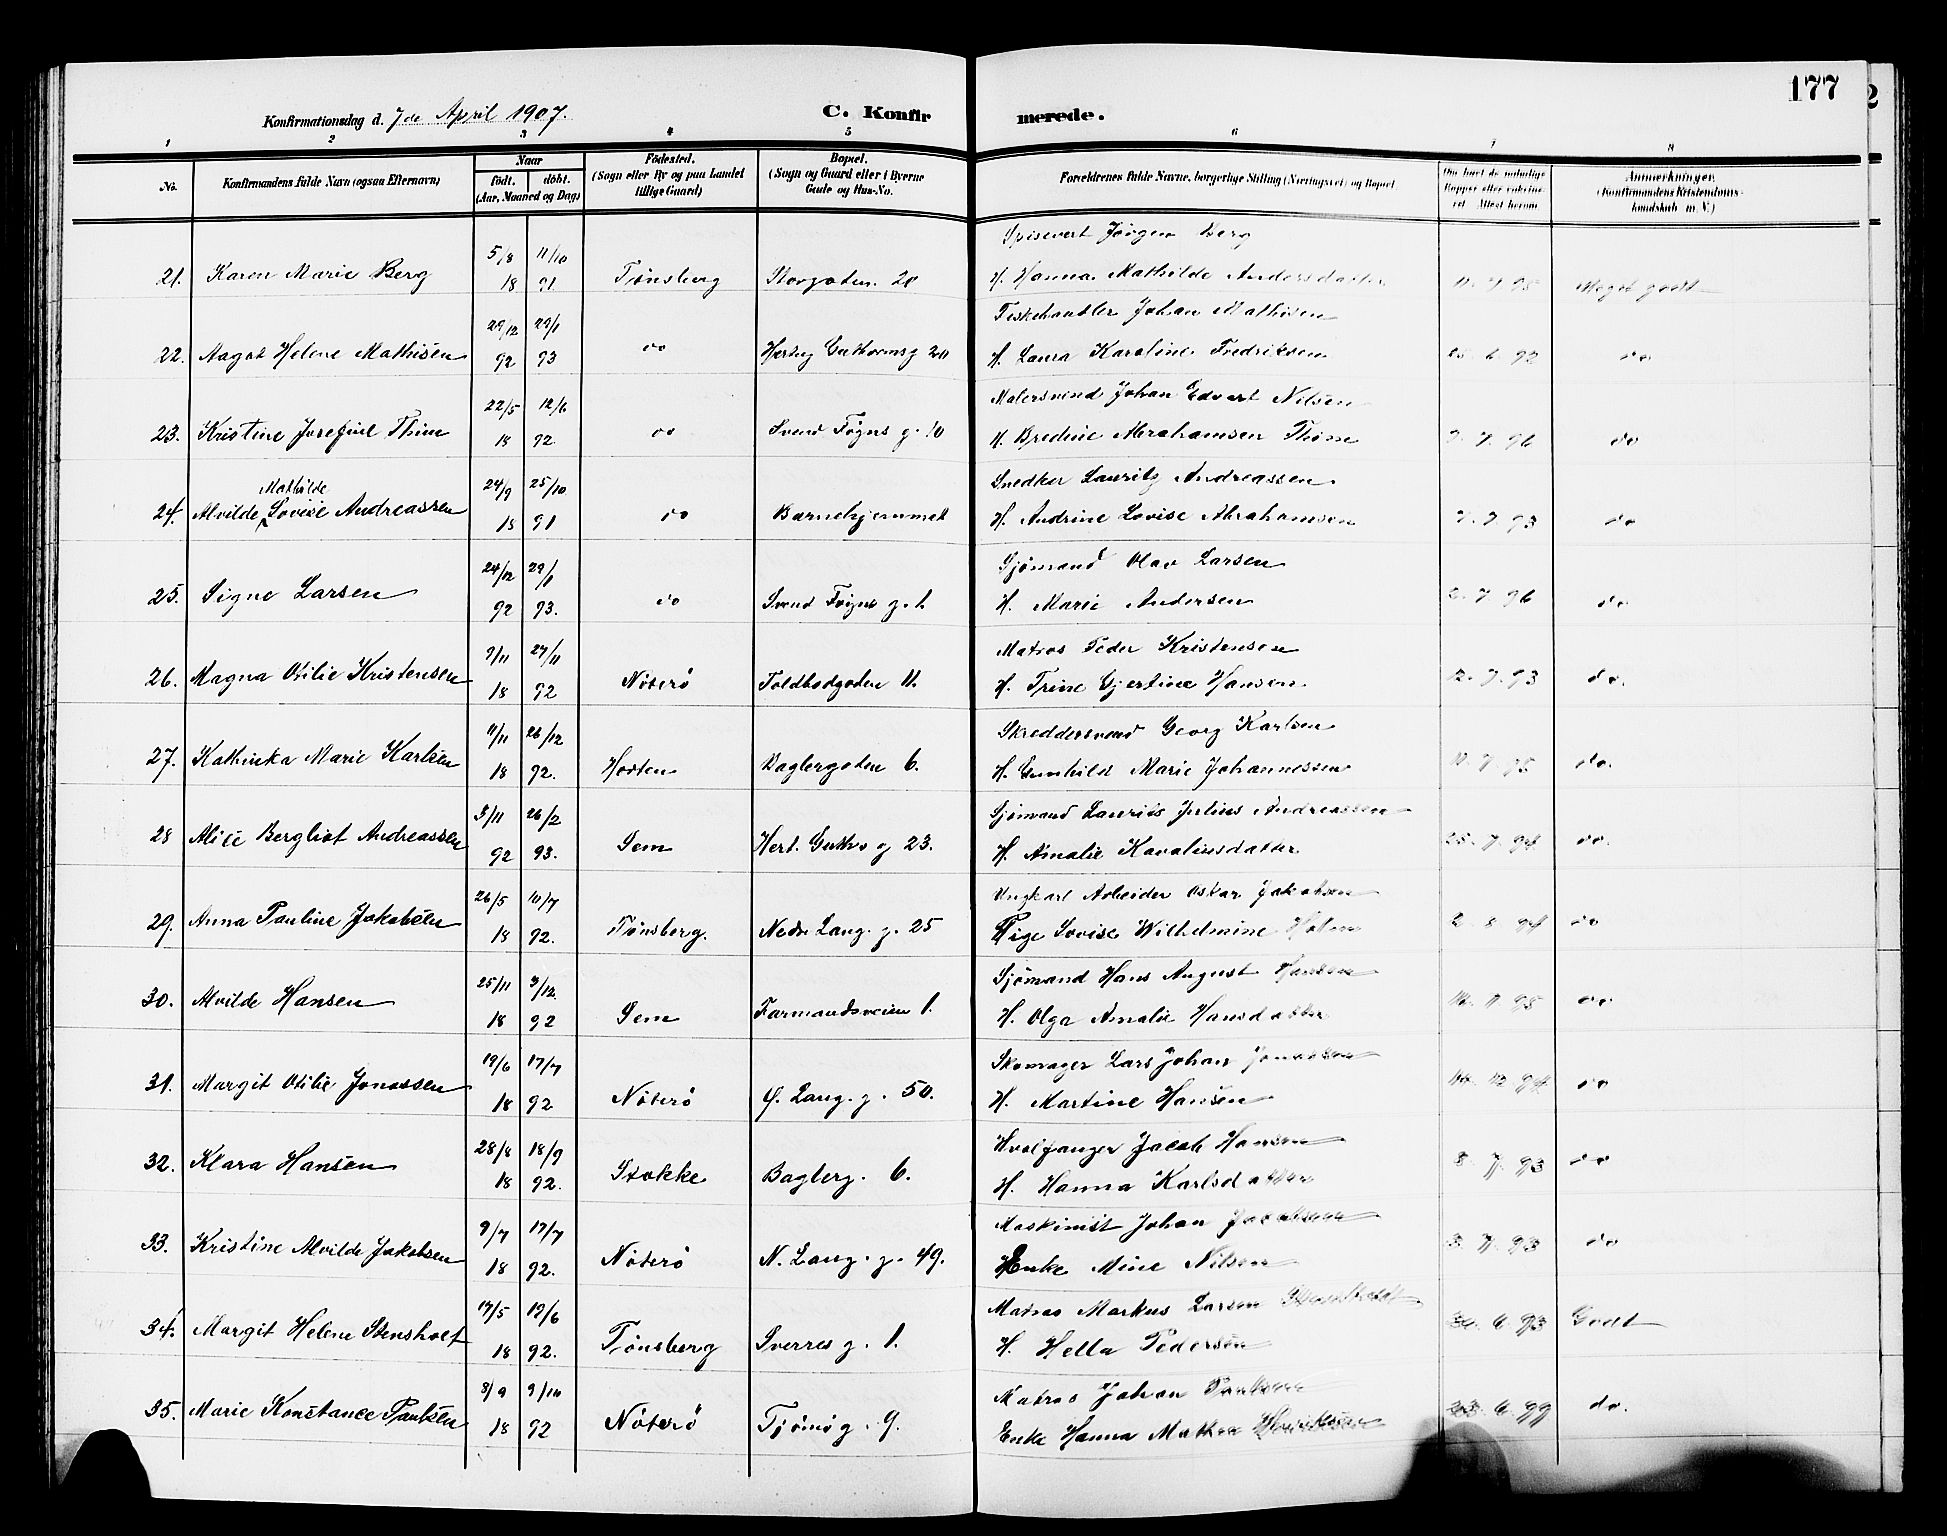 177
Konfirmationsdag d. 7de April 1907.
C. Konfirmerede.
1 2 3 4 5 6 7 8
No.
Konfirmandens fulde Navn (ogsaa Efternavn)
Naar
födt. döbt.
(Aar, Maaned og Dag)
Födested.
(Sogn eller By og paa Landet
tillige Gaard)
Bopæl.
(Sogn og Gaard eller i Byerne
Gade og Hus-No.
Forældrenes fulde Navne, borgerlige Stilling (Næringsvei) og Bopæl.
Om havt de naturlige
Kopper eller vaccine-
ret. Attest herom.
Anmærkninger.
(Konfirmandens Kristendoms-
kundskab m. V.)
5/8 11/10 Spisevert Jörgen Berg
21. Karen Marie Berg 18 91 Tønsberg Storgaden 20 H. Hanna Mathilde Andersdatter 11. 7. 95 Meget godt
29/12 29/1 Fiskehandler Johan Mathisen
22. Aagot Helene Mathisen 92 93 do Hertug Guthormsg 20 H. Laura Karoline Fredriksen 92 do
22/5 12/6 Malersvend Johan Edvart Nilsen
23. Kristine Josefine Thim 18 92. do Svend Føyns g. 10 H. Bredine Abrahamsen 7. 7. 96 do
Mathilde 24/9 25/10 Snedker Lauritz Andreassen
24. Alvilde Lovise Andreassen 18 91 do Barnehjemmet H. Andrine Lovise Abrahamsen 7. 7. 93 do
24/12 29/1 Sjömand Olav Larsen
25. Signe Larsen 92 93. do Svend Føyns g. 1. H. Marie Andersen 2. 7. 96 do
9/11 27/11 Matros Peder Kristensen
26. Magna Otilie Kristensen 18 92 Nöterö Toldbodgaden 11. H. Trine Gjertine Hansen 12. 7. 93 do.
11/11 26/12 Skreddersvend Georg Karlsen
27. Kathinka Marie Karlsen 18 92. Horten Baglergaden 6. H. Gunhild Marie Johannessen 11. 7. 95 do.
3/11 26/2 Sjømand Laurits Julius Andreassen
28 Alise Bergliot Andreassen 92 93. Sem Hert. Gutho g 23. H. Amalie Karaliusdatter 25. 7. 94 do.
26/5 10/7 Ungkarl Arbeider Oskar Jakobsen
29. Anna Pauline Jakobsen 18 92. Tønsberg. Nedre Lang. g. 25 Pige Lovise Wilhelmine Holm 2. 8. 94 do
25/11 3/12 Sjömand Hans August Hansen
30. Alvilde Hansen 18 92 Sem Farmandsveien 1. H. Olga Amalie Hansdatter 95 do
19/6 17/7 Skomager Lars Johan Jonassen
31. Margit Otilie Jonassen 18 92 Nöterö Ø. Lang. g. 50. H. Martine Hansen 14. 12. 94 do
28/8 18/9 Hvalfanger Jacob Hansen
32. Klara Hansen 18 92. Stokke Baglerg. 6. H. Hanna Karlsdatter 8. 7. 93 do
9/7 17/7 Maskinist Johan Jacobsen
33. Kristine Alvilde Jakobsen 18 92. Nöterö N. Lang. g. 49. Enke Mine Nilsen 3. 7. 93 do
17/5 19/6 Matros Markus Larsen Stensholdt
34. Margit Helene Stensholt 18 92. Tønsberg Sverres g. 1. H. Hella Pedersen 30. 6. 93 Godt
8/9 9/10 Matros Johan Paulsen
35. Marie Konstance Paulsen 18 92 Nöterö Tjømø g. 9. Enke Hanna Mathea Henriksen 23. 6. 99 do.